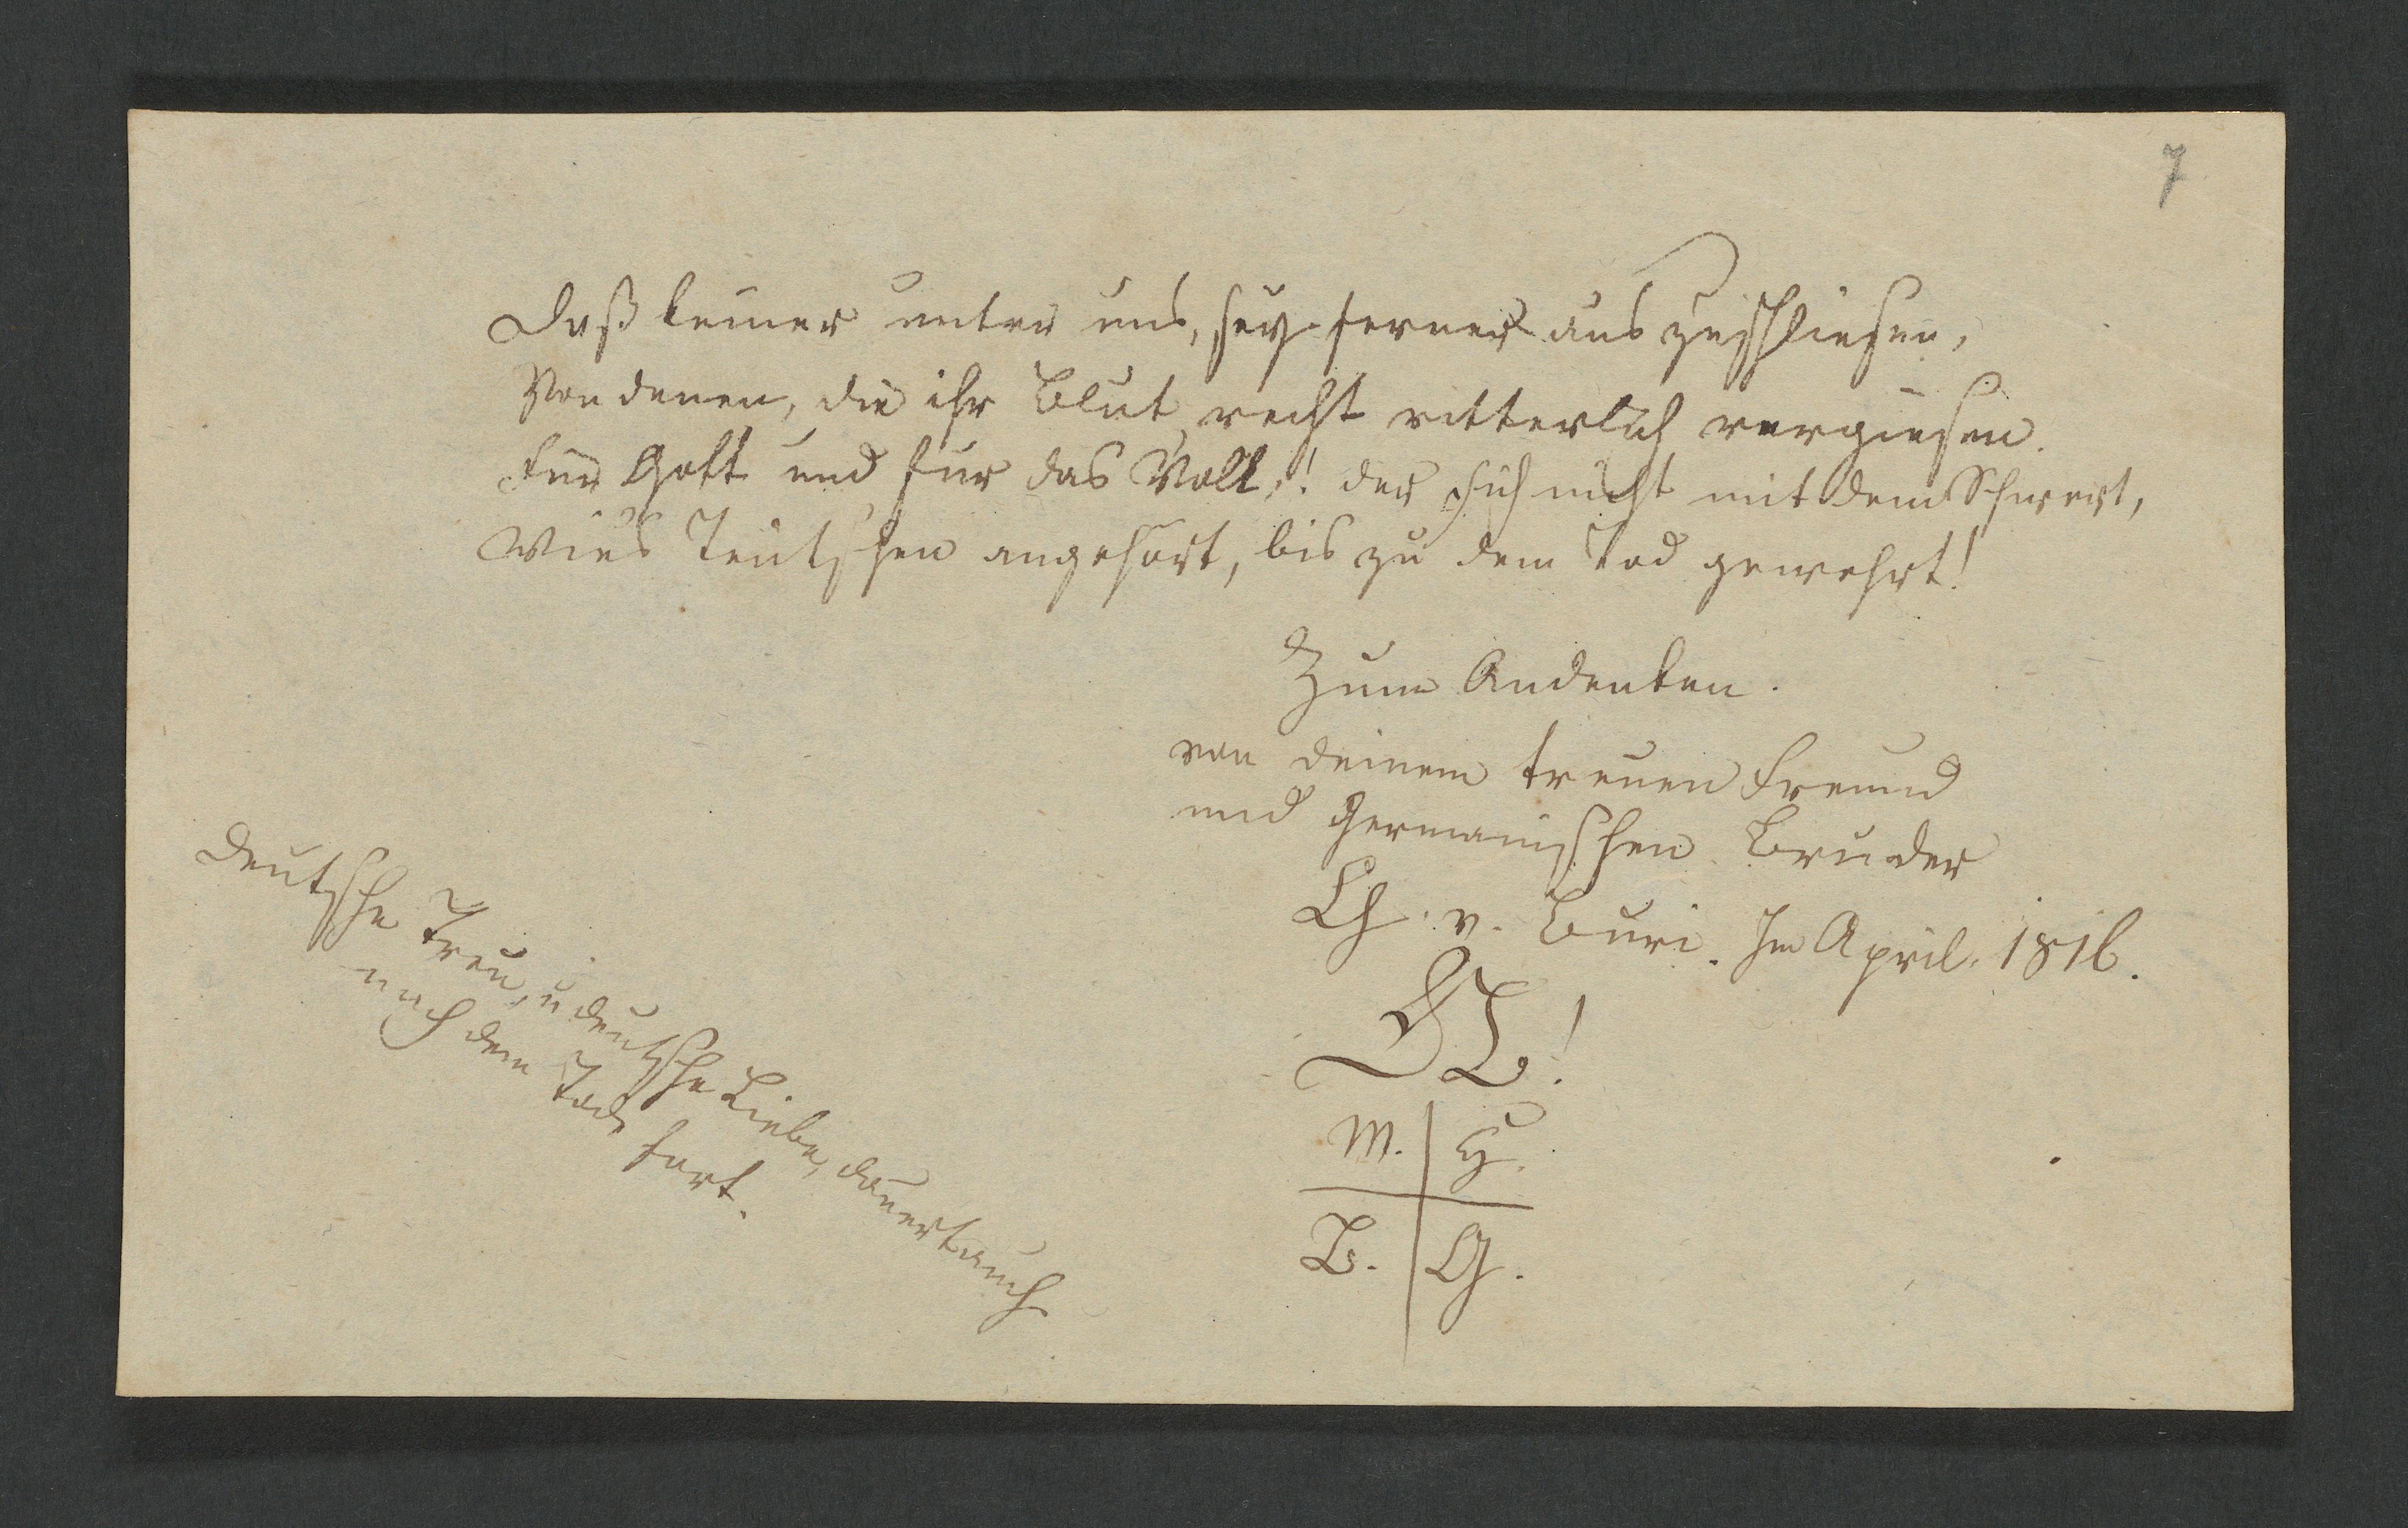 7
Daß keiner unter uns, sey ferner auszuschliesen,
Von denen, die ihr Blut recht ritterlich vergiesen.
Für Gott und für das Volk,! der sich nicht mit dem Schwert,
Wies Teutschen angehört, bis zu dem Tod gewehrt!
Zum Andenken.
von deinem treuen Freund
und Germanischen Bruder
Ch. v. Buri. Im April. 1816.
M. | H.
B. | G.
Deutsche Treu, u deutsche Liebe, dauert auch
nach dem Tode fort.